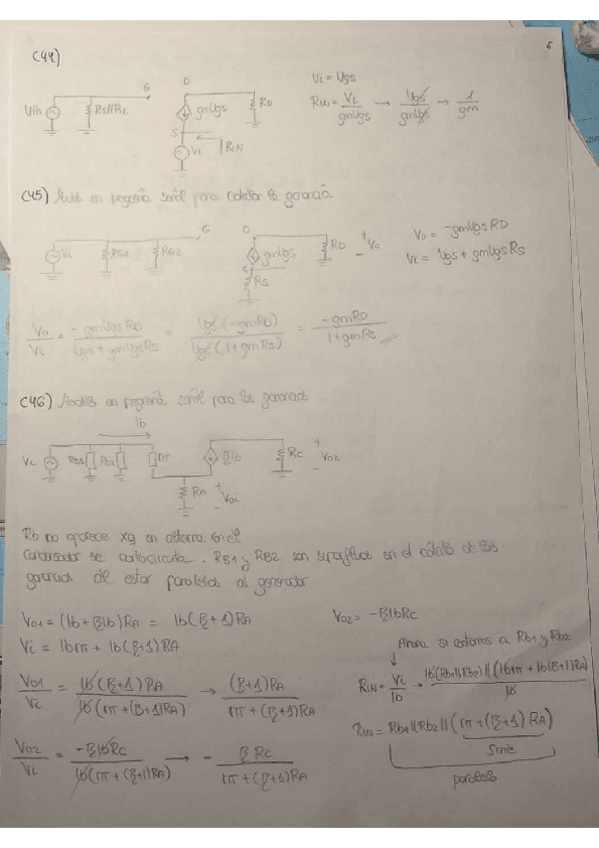 6
C44)
G
D
Vth
RS1||RS2
gmVgs
RD
S
Vi
RIN
Vi = Vgs
RIN = Vi/gmVgs → Vgs/gmVgs → 1/gm
C45) Modelo en pequeña señal para calcular las ganancia
G
D
Vi
RG1
RG2
gmVgs
RD
+ Vo -
S
RS
Vo = -gmVgsRD
Vi = Vgs + gmVgsRS
Vo/Vi = -gmVgsRD/Vgs+gmVgsRS = Vgs(-gmRD)/Vgs(1+gmRS) = -gmRD/1+gmRS
C46) Modelo en pequeña señal para las ganancias
Ib
Vi
RB1
RB2
rπ
βIb
RC
+ Vo2 -
RA
+ Vo1 -
Rb no aparece xq en alterna en el
Condensador se cortocircuita. RB1 y RB2 son superfluos en el cálculo de las
ganancias de estar paralelas al generador
Vo1 = (Ib + βIb)RA = Ib(β+1)RA
Vo2 = -βIbRC
Vi = Ibrπ + Ib(β+1)RA
Ahora si contamos a Rb1 y Rb2
Vo1/Vi = Ib(β+1)RA/Ib(rπ+(β+1)RA) → (β+1)RA/rπ+(β+1)RA
RIN = Vi/Ib = Ib(Rb1||Rb2)||(Ibrπ + Ib(β+1)RA)/Ib
RIN = Rb1||Rb2||(rπ+(β+1)RA)
serie
paralelo
Vo2/Vi = -βIbRC/Ib(rπ+(β+1)RA) → - βRC/rπ+(β+1)RA